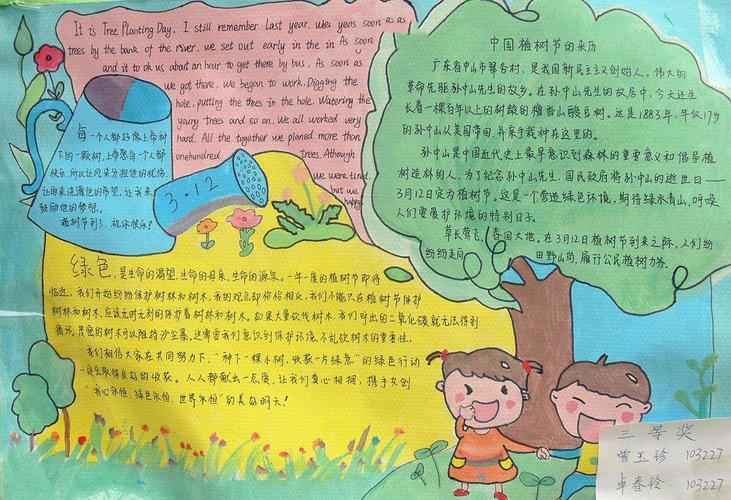 It is Tree Planting Day, I still remember last year, When yens soon as as
trees by the bank of the river, we set out early in the in As soon
and it to ok us about an hour to get there by bus, As soon as
we got there, we began to work, Digging the
hole, putting the trees in the hole, Watering the
young trees and so on, We all worked very
hard. All the together we planed more than
onehundred trees, Athough
we were tired
but we
happy
每一个人都好像上帝树
下的一颗树,上帝愿每一个人都
快乐,所以让风来分担他的忧伤,
让雨来浇灌他的希望,让我来
鼓励他的梦想。
植树节到了,祝你快乐!
3.12
中国植树节的来历
广东省中山市翠亨村,是我国新民主主义创始人,伟大的
革命先驱孙中山先生的故乡。在孙中山先生的故居中,今天还生
长着一棵百年以上的树龄的檀香山酸豆树。这是1883年,年仅17岁
的孙中山从美国带回,并亲自栽种在这里的。
孙中山是中国近代史上最早意识到森林的重要意义和倡导植
树造林的人。为了纪念孙中山先生,国民政府将孙中山的逝世日——
3月12日定为植树节。这是一个营造绿色环境,期待绿水青山,呼唤
人们重展护环境的特别日子。
草长莺飞,春回大地。在3月12日植树节到来之际,人们纷
纷纷走向 田野山岗,履行公民植树义务。
绿色,是生命的渴望,生命的母亲,生命的源泉。一年一度的植树节即将
临近,我们开始纷纷保护树林和树木,我的观点却恰恰相反,我们不能只在植树节保护
树林和树木,应该无时无刻的保护着树林和树木。如果大量砍伐树木,我们呼出的二氧化碳就无法得到
循环,只有的树木可以阻挡沙尘暴。这需要我们意识到保护环境、不乱砍树木的重要性。
我们相信大家在共同努力下,“种下一棵小树,收获一片绿意”的绿色行动
一定会取得良好的收获。人人都献出一份爱,让我们真心相拥,携手共创
“我心永恒,绿色永恒,世界永恒”的美好明天!
三等奖
103227
103227